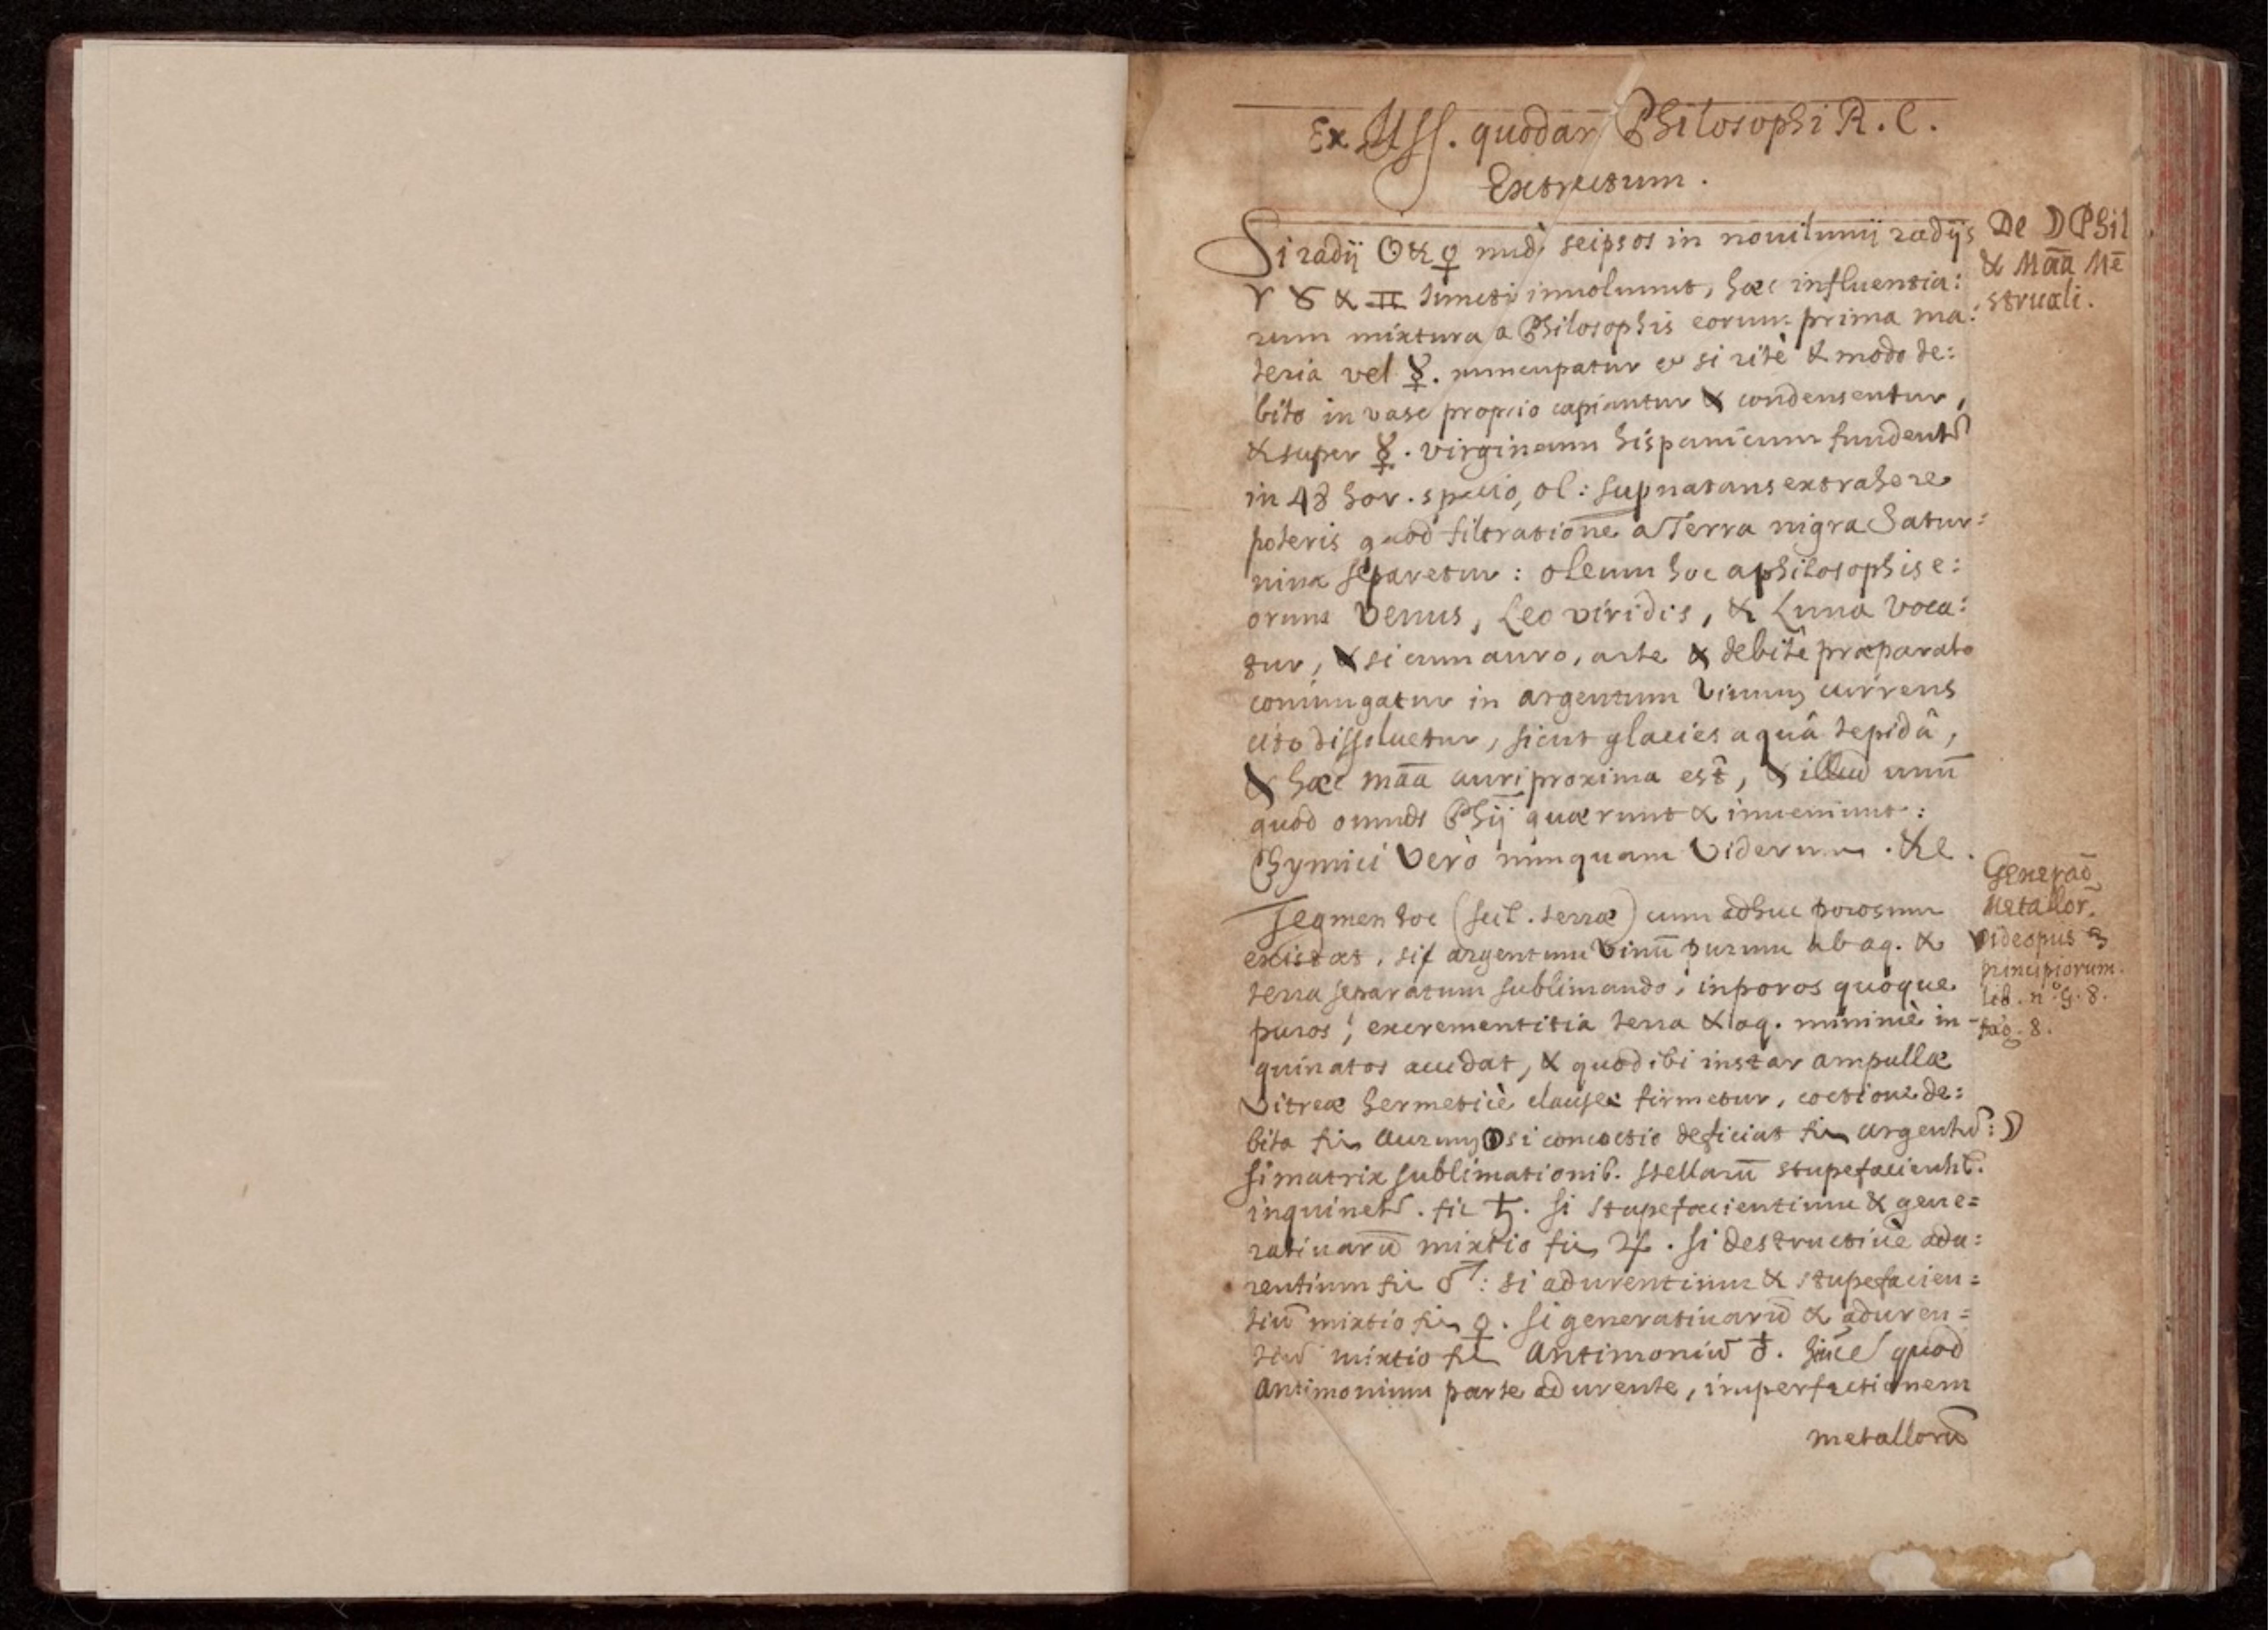 Ex Mss. quodam Philosophi R. C.
Extractum.
Si radij ☉ & ☿ nudi seipsos in nouilunij radijs
♈ ♉ & ♊ iuncti inuoluunt, hæc influentia:
rum mixtura a Philosophis eorum prima ma:
teria vel ☿. nuncupatur & si ritè & modo de:
bito in vase proprio capiantur & condensentur,
& super ☿. virgineum hispanicum fundent
in 48 hor. spacio, ol: supnatans extrahere
poteris quod filtratione a Terra nigra Satur:
nina separetur: oleum hoc a philosophis e:
orum Venus, Leo viridis, & Luna voca:
tur, & si cum auro, arte & debitê præparato
coniungatur in argentum viuum currens
cito dissoluetur, sicut glacies aquâ tepidâ,
& hæc māa auri proxima est, & illud unū
quod omnes Phij quærunt & inueniunt:
Chymici verò nunquam viderunt. &c.
Tegmen hoc (scil. terræ) cum adhuc porosum
existat, si argentum viuū purum ab aq. &
terra separatum sublimando, in poros quoque
puros, excrementitia terra & aq. minimè in-
quinatos accidat, & quod ibi instar ampullæ
vitreæ hermeticè clausæ firmetur, coctione de:
bita fit aurum ☉ si concoctio deficiat fit argentū: ☽
si matrix sublimationib. stellarū stupefacientib.
inquinet. fit ♄. si stupefacientium & gene=
ratiuarū mixtio fit ♃. si destructiuè adu:
rentium fit ♂: si adurentium & stupefacien=
tiū mixtio fit ♀. si generatiuarū & aduren=
tiū mixtio fit Antimoniū ♁. hinc quod
Antimonium parte adurente, imperfectionem
metallorū
De ☽ Phil
& Māa Mē
struali.
Generaō
Metallor.
vide opus 3
principiorum.
lib. n.º G. 8.
pag. 8.